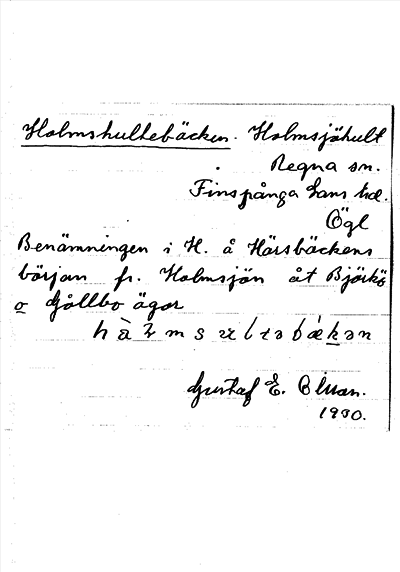 Holmshultebäcken. Holmsjöhult
Regna sn.
Finspånga läns hd.
Ögl
Benämningen i H. å Härsbäckens
början fr. Holmsjön åt Björkö
o Göllbo ägor
Gustaf E. Olsson.
1930.